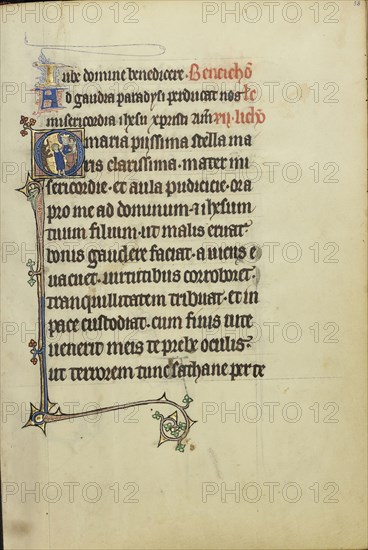 Iube domine benedicere. Beneicho
Ad gaudia paradysi perducat nos
misericordia ihesu xpristi am̄
O maria piissima stella ma
ris clarissima. mater mi
sericordie. et aula pudicicie. ora
pro me ad dominum. et ihesum
tuum filium. ut malis eruat.
bonis gaudere faciat. a viciis e
vacuet. virtutibus corroboret.
tranquillitatem tribuat. et in
pace custodiat. cum finis vite
venerit meis te prebe oculis.
ut terrorem tunc sathane per te